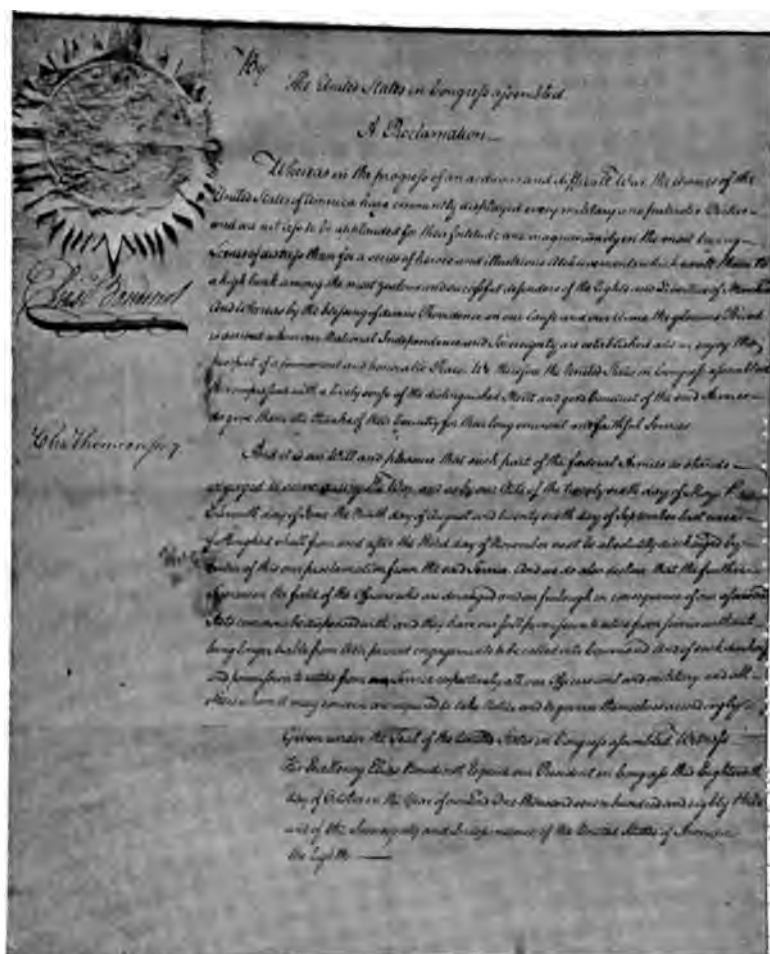 By
The United States in Congress assembled
A Proclamation
Whereas in the progress of an arduous and difficult War, the Armies of the
United States of America have eminently displayed every military and patriotic Virtue
and are not less to be applauded for their fortitude and magnanimity in the most trying
Scenes of distress than for a series of heroic and illustrious Atchievements which exalt them to
a high rank among the most zealous and successful defenders of the Rights and Liberties of Mankind
And Whereas by the blessing of divine Providence on our Cause and our Arms the glorious Period
is arrived when our National Independence and Sovereignty are established and we enjoy the
prospect of a permanent and honorable Peace. We therefore the United States in Congress assembled
impressed with a lively sense of the distinguished Merit and good Conduct of the said Armies
do give them the thanks of their Country for their long eminent and faithful Services
Elias Boudinot
Chas Thomson secy
And it is our Will and pleasure that such part of the federal Armies as stands
engaged to serve during the War, and as by our Acts of the twenty sixth day of May the
Eleventh day of June the Ninth day of August and twenty sixth day of September last were
furloughed shall from and after the third day of November next be absolutely discharged by
virtue of this our proclamation from the said Service. And we do also declare that the further
Services in the field of the Officers who are deranged and on furlough in consequence of our aforesaid
Acts can now be dispensed with and they have our full permission to retire from service without
being longer liable from their present engagements to be called into Command And of such discharge
and permission to retire from Service respectively all our Officers civil and military and all
others whom it may concern are required to take Notice and to govern themselves accordingly
Given under the Seal of the United States in Congress assembled Witness
His Excellency Elias Boudinot Esquire our President in Congress this Eighteenth
day of October in the Year of our Lord One thousand seven hundred and eighty three
and of the Sovereignty and Independence of the United States of America
the Eighth